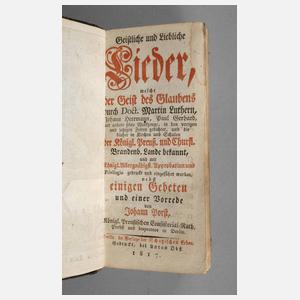 Geistliche und Liebliche
Lieder,
welche
der Geist des Glaubens
durch Doct. Martin Luthern,
Johann Heermann, Paul Gerhard,
und andere seine Werkzeuge, in den vorigen
und jetzigen Zeiten gedichtet, und die
bisher in Kirchen und Schulen
der Königl. Preuß. und Churfl.
Brandenb. Lande bekannt,
und mit
Königl. Allergnädigst. Approbation und
Privilegio gedruckt und eingeführet worden,
nebst
einigen Gebeten
und einer Vorrede
von
Johann Porst,
Königl. Preußischen Consistorial-Rath,
Probst und Inspectore in Berlin.
Berlin, im Verlage der Schatzischen Erben.
Gedruckt, bei Anton Obst
1817.